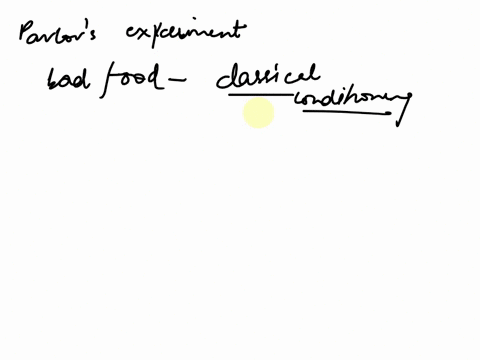 Pavlov's experiment
bad food - classical
conditioning